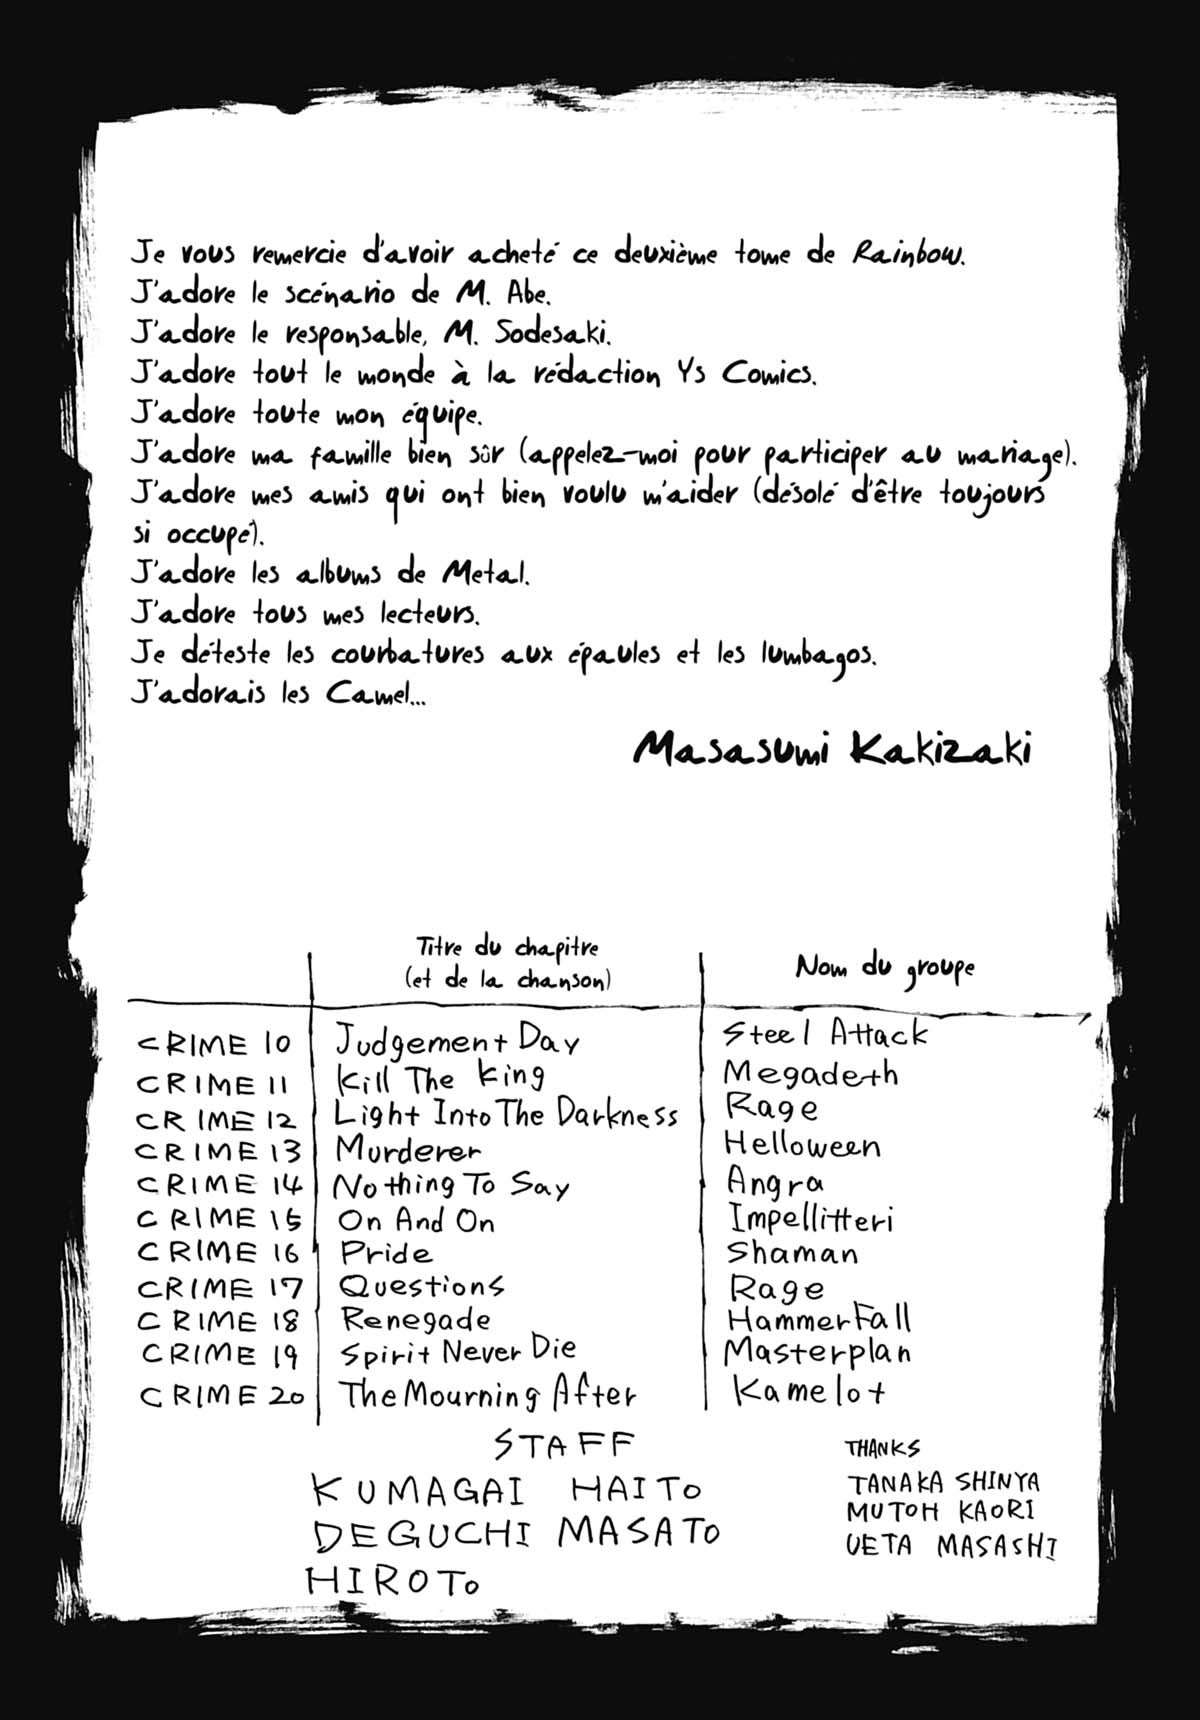 Je vous remercie d'avoir acheté ce deuxième tome de Rainbow.
J'adore le scénario de M. Abe.
J'adore le responsable, M. Sodesaki.
J'adore tout le monde à la rédaction Ys Comics.
J'adore toute mon équipe.
J'adore ma famille bien sûr (appelez-moi pour participer au mariage).
J'adore mes amis qui ont bien voulu m'aider (désolé d'être toujours
si occupé).
J'adore les albums de Metal.
J'adore tous mes lecteurs.
Je déteste les courbatures aux épaules et les lumbagos.
J'adorais les Camel...
Masasumi Kakizaki
Titre du chapitre
(et de la chanson)
Nom du groupe
CRIME 10 Judgement Day Steel Attack
CRIME 11 Kill The King Megadeth
CRIME 12 Light Into The Darkness Rage
CRIME 13 Murderer Helloween
CRIME 14 Nothing To Say Angra
CRIME 15 On And On Impellitteri
CRIME 16 Pride Shaman
CRIME 17 Questions Rage
CRIME 18 Renegade HammerFall
CRIME 19 Spirit Never Die Masterplan
CRIME 20 The Mourning After Kamelot
STAFF
KUMAGAI HAITO
DEGUCHI MASATO
HIROTO
THANKS
TANAKA SHINYA
MUTOH KAORI
UETA MASASHI